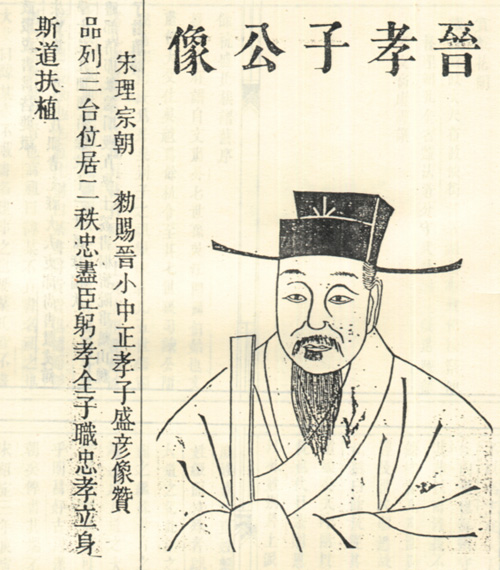 晉孝子公像
宋理宗朝　勑賜晉小中正孝子盛彦像贊
品列三台位居二秩忠盡臣躬孝全子職忠孝立身
斯道扶植